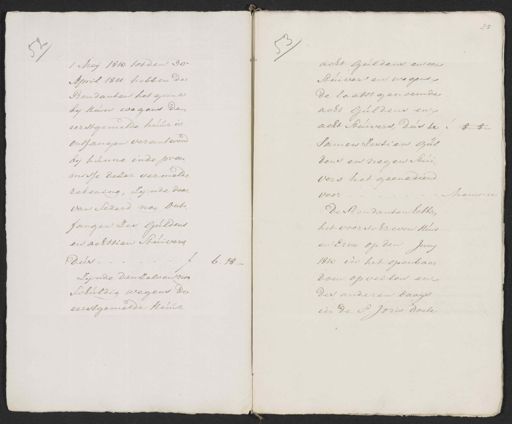 52
1 Meij 1810 tot den 30
April 1811 hebben de
Rendanten het geen
bij hun wegens de
eerstgemelde huur is
ontfangen verantwoord
bij hunne ende pro
memorie dezer vermelde
rekening, zijnde daar
van zedert nog Ont
fangen Zes Guldens
en achttien Stuivers
Dus . . . . . . f 6 18 -
Zijnde
Schuldig wegens de
eerstgemelde Huur
53
acht Guldens en een
Stuiver en wegens
de laatst genoemde
acht Guldens en
acht Stuivers, Dus te f 8-8-
Samen Sestien Gul
dens en negen Stui
vers het geene dient
voor . . . . . . Memorie
De Rendanten hebben
het voorschreven Huis
en Erve op den Junij
1810 in het openbaar
doen opveilen en
des anderen daags
in de St Joris doele